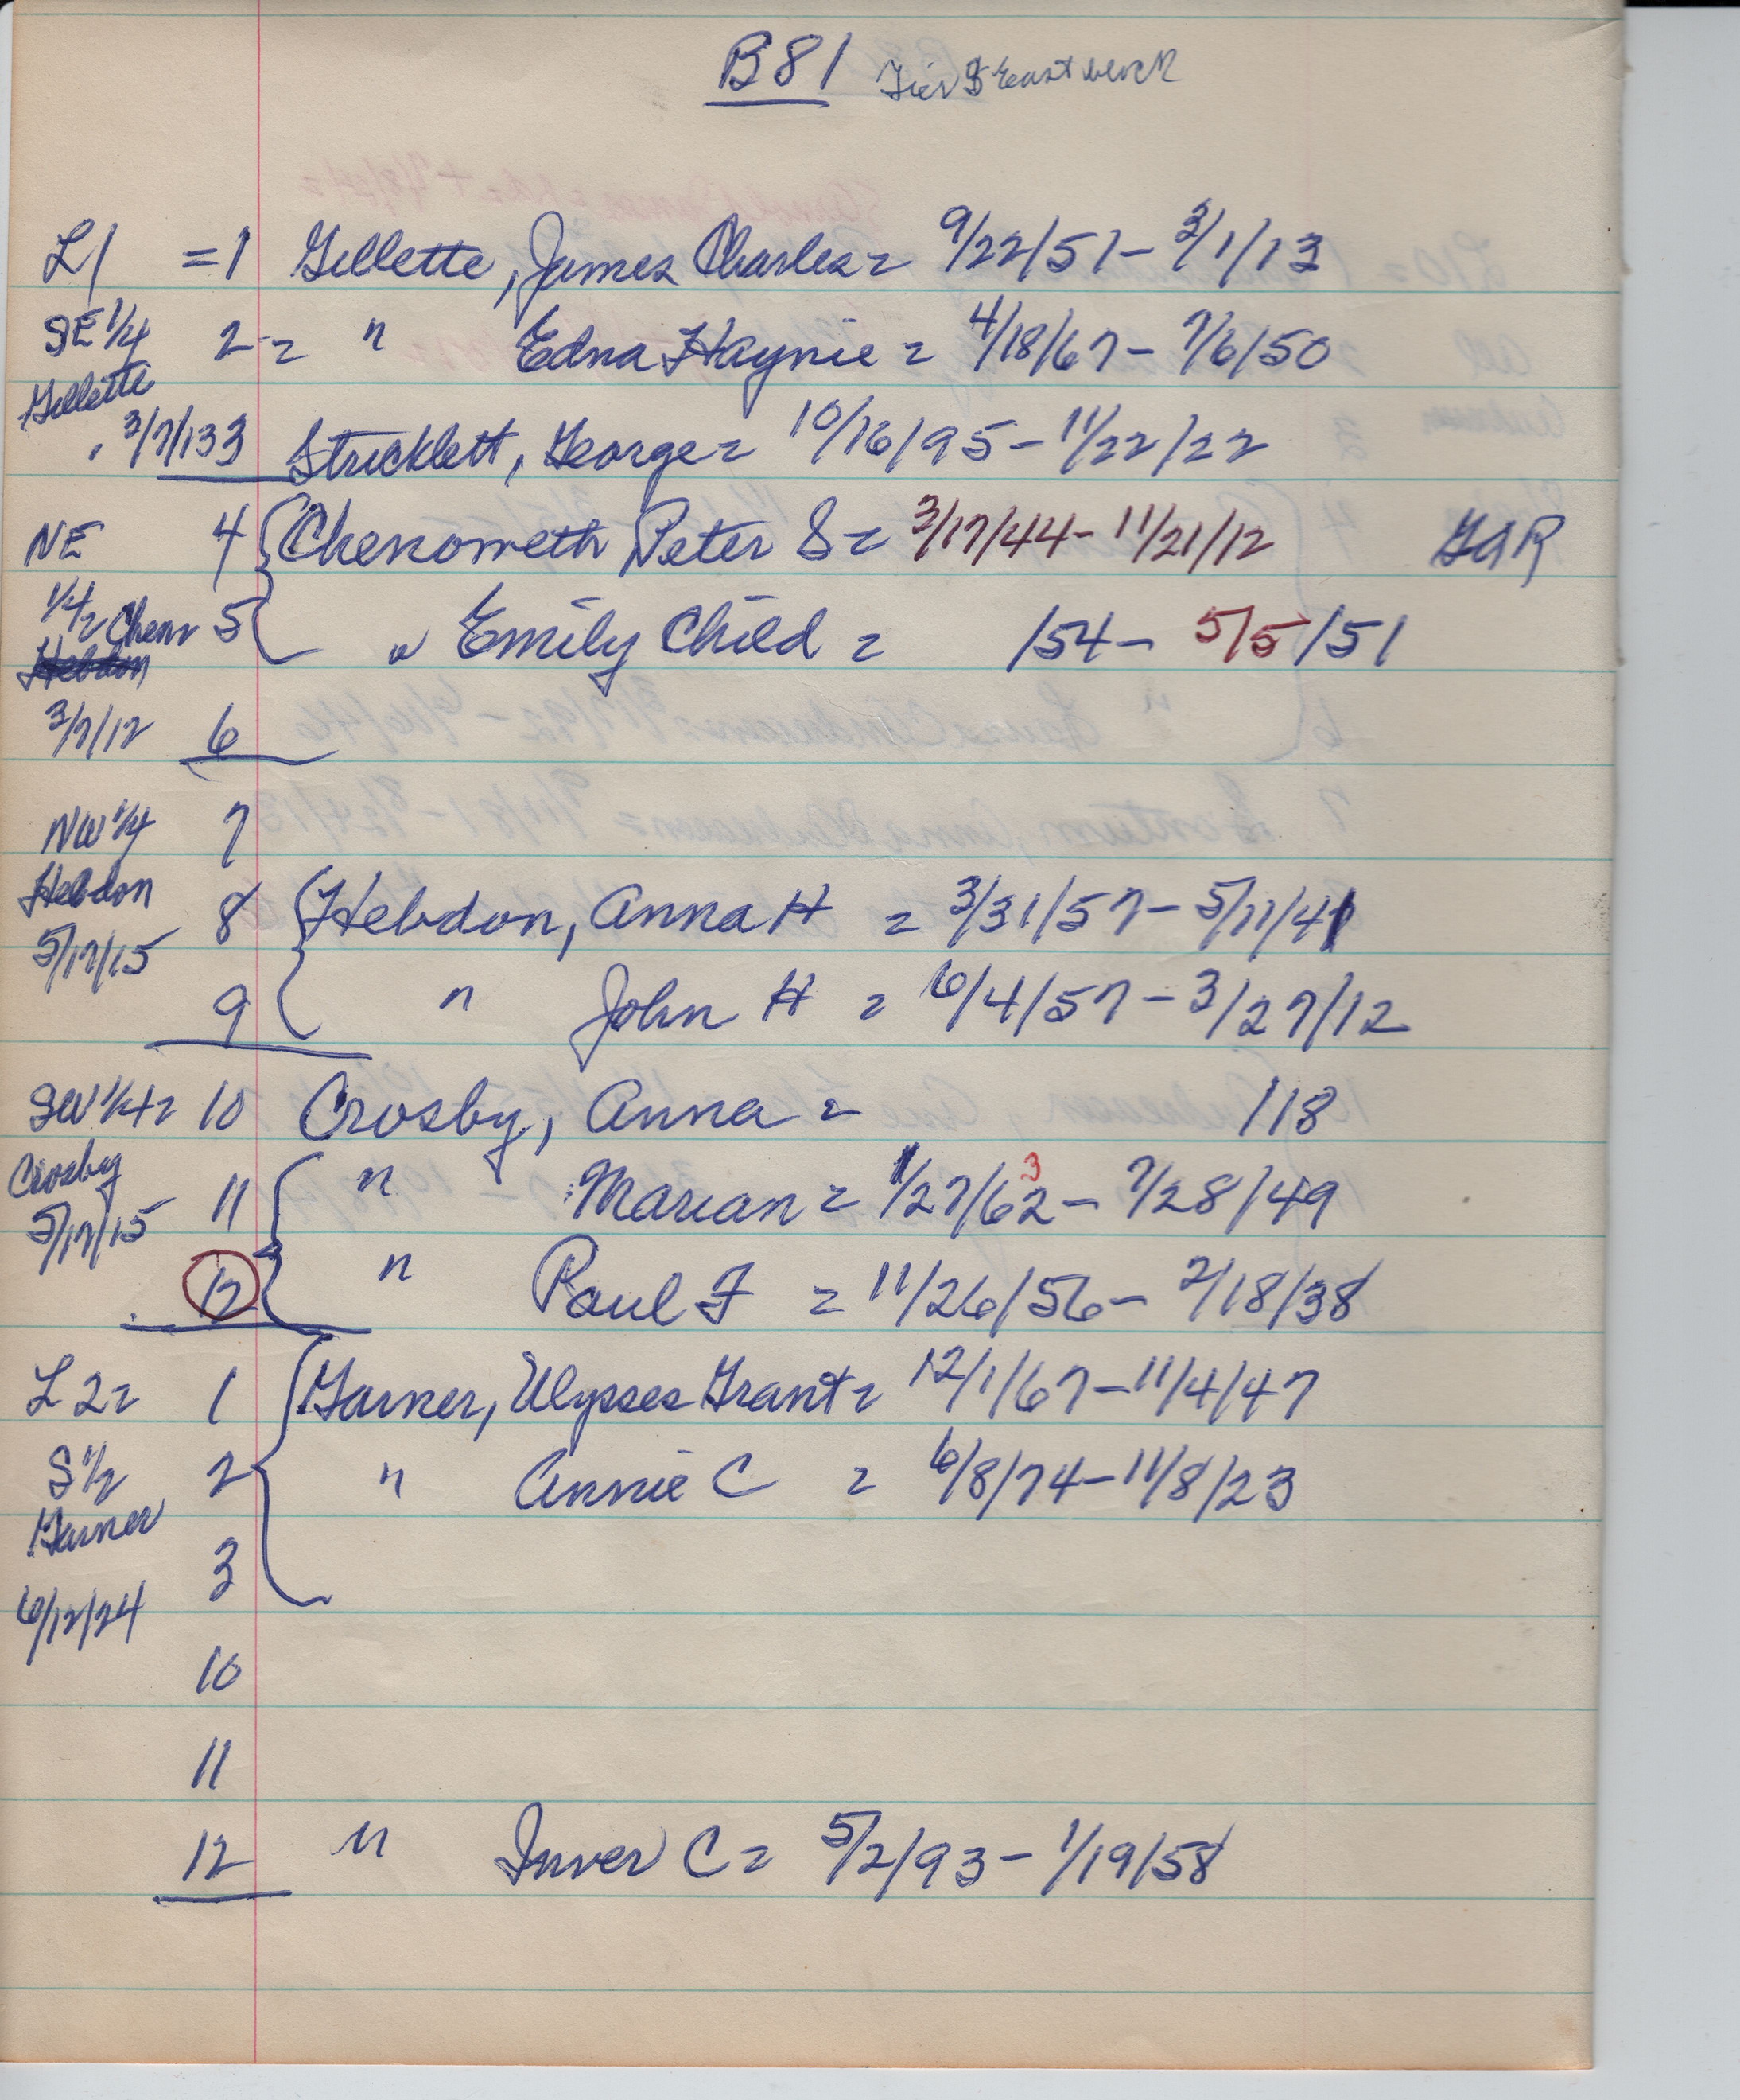 B81 Tier 8 East block
L1 =1 Gillette, James Charles = 9/22/57 - 3/1/13
SE 1/4 2 = " Edna Haynie = 4/18/67 - 7/6/50
Gillette
3/7/13 3 Stricklett, George = 10/16/95 - 11/22/22
NE 4 Chenoweth Peter S = 3/17/44 - 11/21/12 GAR
1/4 = Chen 5 " Emily Child = /54 - 5/5/51
Hebdon
3/7/12 6
NW 1/4 7
Hebdon 8 Hebdon, Anna H = 3/31/57 - 5/11/41
5/17/15
9 " John H = 6/4/57 - 3/27/12
SW 1/4 = 10 Crosby, Anna = /18
Crosby 11 " Marian = 1/27/62 3 - 7/28/49
5/17/15
12 " Paul F = 11/26/56 - 2/18/38
L2 = 1 Garner, Ulysses Grant = 12/1/67 - 11/4/47
S 1/2 2 " Annie C = 6/8/74 - 11/8/23
Garner
3
6/12/24
10
11
12 " Inver C = 5/2/93 - 1/19/58